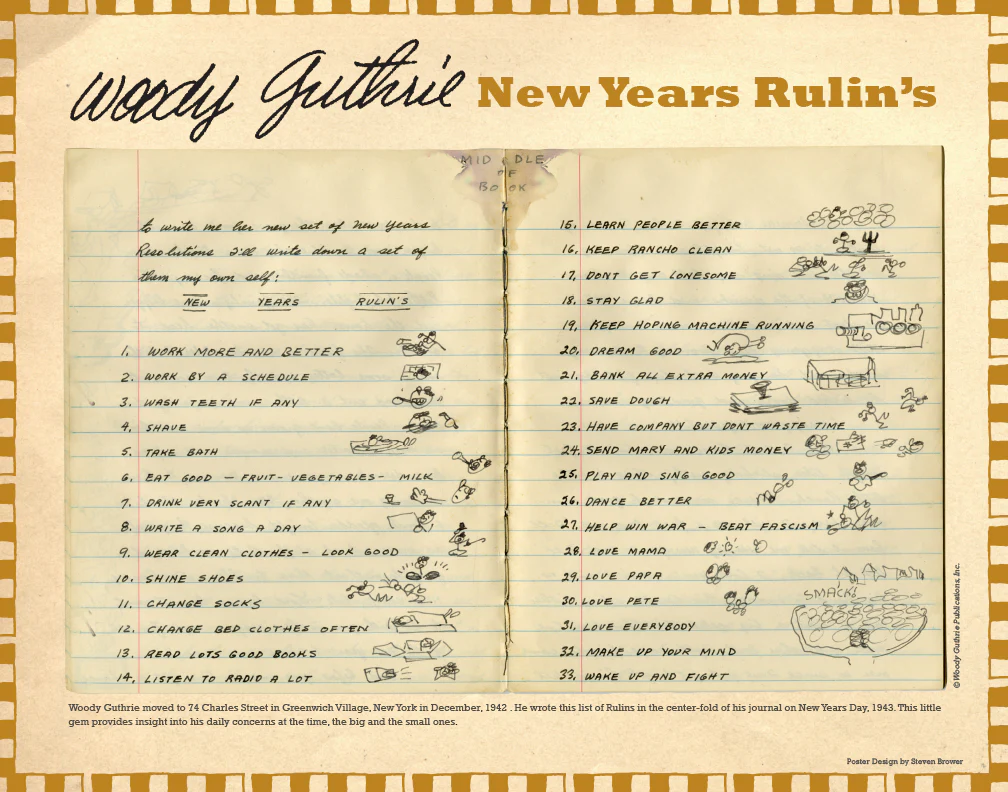 Woody Guthrie New Years Rulin's
MIDDLE
OF
BOOK
to write me her new set of New Years
Resolutions I'll write down a set of
them my own self:
NEW YEARS RULIN'S
1. WORK MORE AND BETTER
2. WORK BY A SCHEDULE
3. WASH TEETH IF ANY
4. SHAVE
5. TAKE BATH
6. EAT GOOD — FRUIT - VEGETABLES - MILK
7. DRINK VERY SCANT IF ANY
8. WRITE A SONG A DAY
9. WEAR CLEAN CLOTHES - LOOK GOOD
10. SHINE SHOES
11. CHANGE SOCKS
12. CHANGE BED CLOTHES OFTEN
13. READ LOTS GOOD BOOKS
14. LISTEN TO RADIO A LOT
15. LEARN PEOPLE BETTER
16. KEEP RANCHO CLEAN
17. DONT GET LONESOME
18. STAY GLAD
19. KEEP HOPING MACHINE RUNNING
20. DREAM GOOD
21. BANK ALL EXTRA MONEY
22. SAVE DOUGH
23. HAVE COMPANY BUT DONT WASTE TIME
24. SEND MARY AND KIDS MONEY
25. PLAY AND SING GOOD
26. DANCE BETTER
27. HELP WIN WAR - BEAT FASCISM
28. LOVE MAMA
29. LOVE PAPA
30. LOVE PETE
SMACK!
31. LOVE EVERYBODY
32. MAKE UP YOUR MIND
33. WAKE UP AND FIGHT
©Woody Guthrie Publications, Inc.
Woody Guthrie moved to 74 Charles Street in Greenwich Village, New York in December, 1942 . He wrote this list of Rulins in the center-fold of his journal on New Years Day, 1943. This little
gem provides insight into his daily concerns at the time, the big and the small ones.
Poster Design by Steven Brower